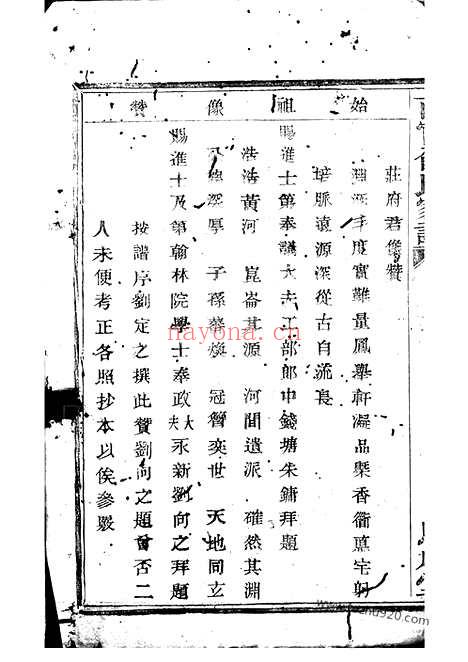 始祖像贊
莊府君像贊
丰度實難量鳳舉軒品槩香
脈遠源深從古自流長
賜進士第奉議大夫工部郎中錢塘朱鏞拜題
浩浩黃河 崑崙其源 河間遺派 確然其淵
深厚 子孫 冠簪奕世 天地同玄
賜進士及第翰林院學士奉政大夫永新劉向之拜題
按譜序劉定之撰此贊劉向之題曾否二
人未便考正各照抄本以俟參
nayona.cn